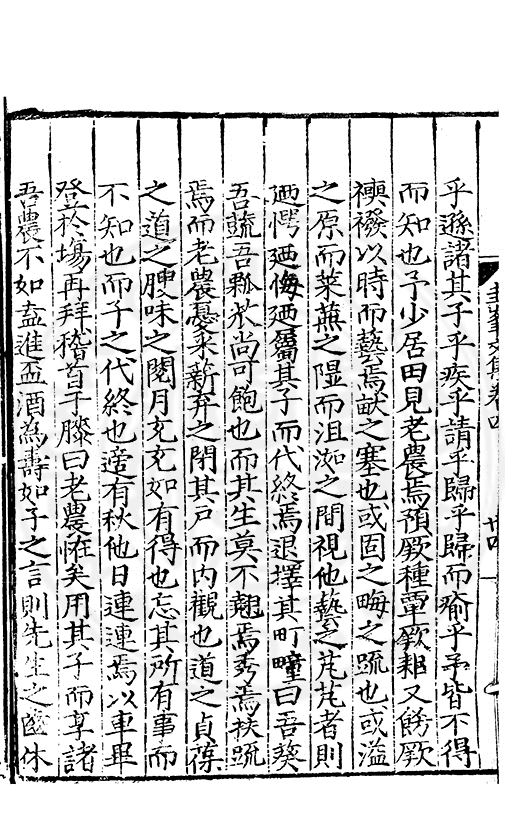 圭峯文集卷四
廿四
乎遜諸其子乎疾乎請乎歸乎歸而瘉乎予皆不得
而知也予少居田見老農焉預厥種覃厥耜又餝厥
襖襏以時而藝焉畎之塞也或固之畮之䟽也或溢
之原而萊蕪之隰而沮洳之間視他藝之芃芃者則
廼愕廼悔廼屬其子而代終焉退擇其町疃曰吾葵
吾蔬吾瓢尒尚可飽也而其生莫不翹焉秀焉扶䟽
焉而老農憂采新弃之閉其户而内觀也道之貞葆
之道之腴味之閱月充充如有得也忘其所有事而
不知也而子之代終也啻有秋他日連連焉以車畢
登於場再拜稽首于滕曰老農恠矣用其子而享諸
吾農不如盍進盃酒為壽如子之言則先生之啬休